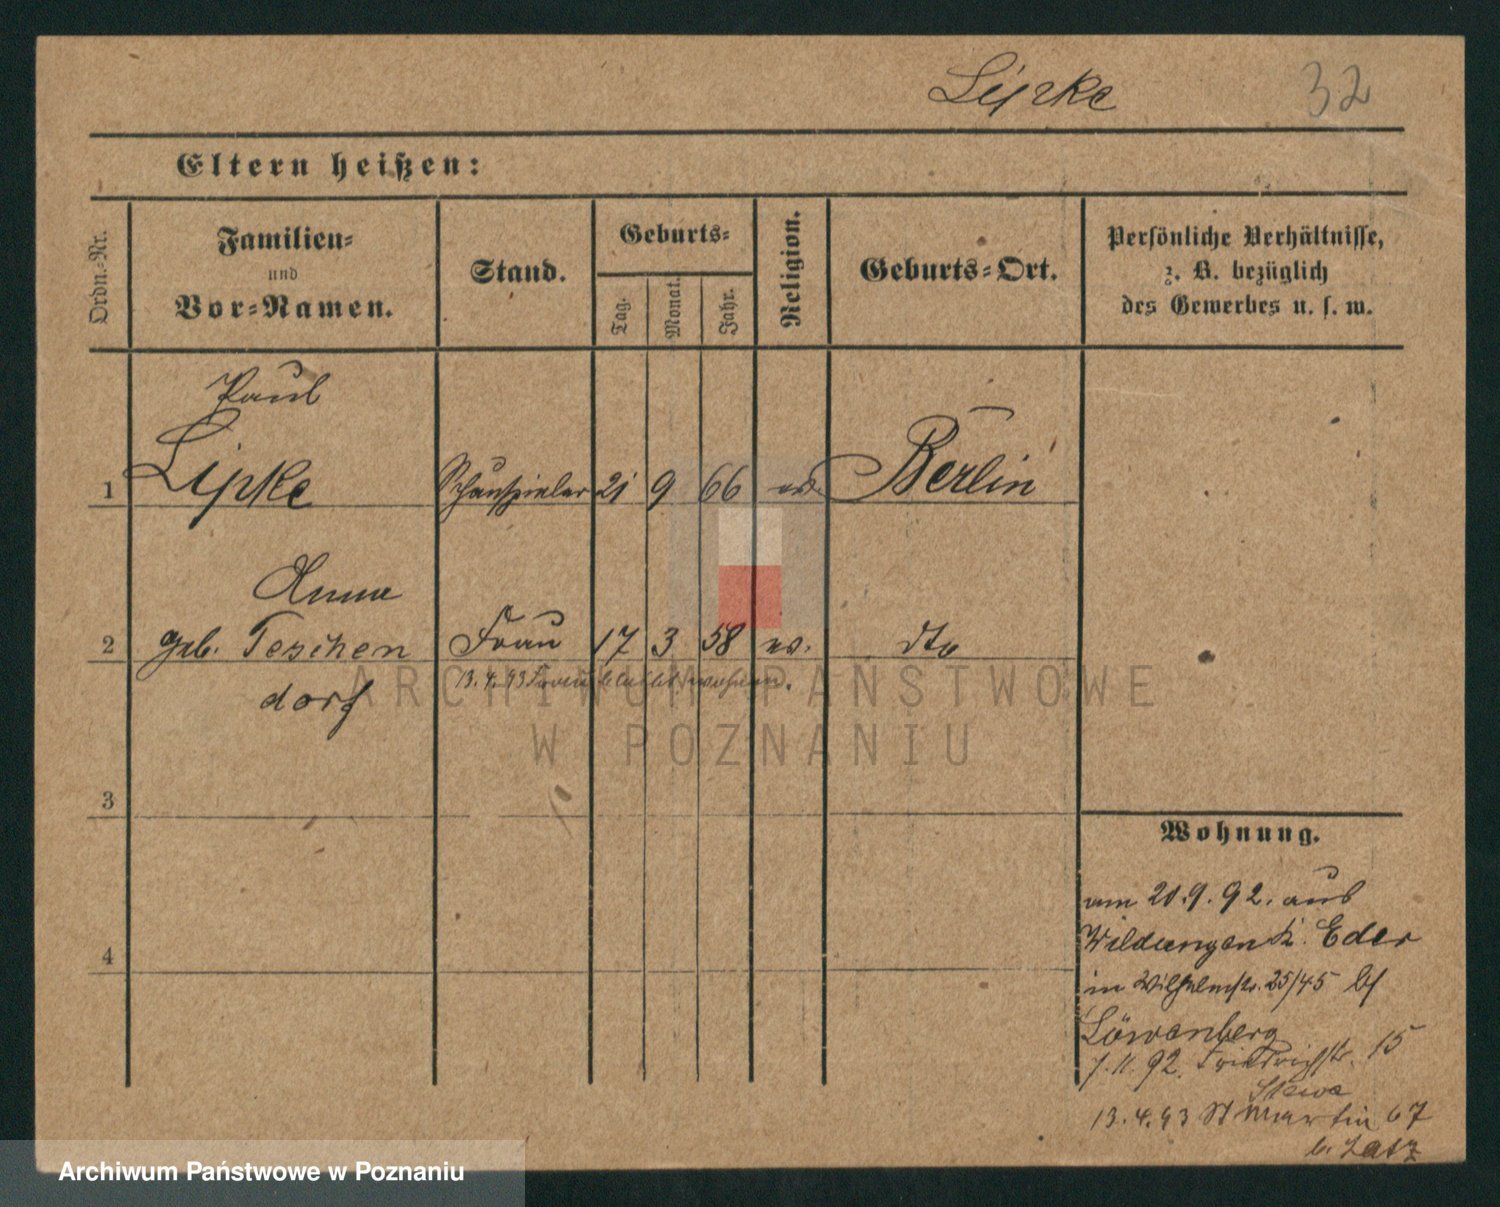 Lipke 32
Eltern heißen:
Ordn.-Nr.
Familien-
und
Vor-Namen.
Stand.
Geburts-
Tag.
Monat.
Jahr.
Religion.
Geburts-Ort.
Persönliche Verhältnisse,
z. B. bezüglich
des Gewerbes u. s. w.
Paul
1 Lipke Schauspieler 21 9 66 ev Berlin
Anna
2 geb. Teschen Frau 17 3 58 ev. dto
13.4.93 Frau wohnen.
dorf
ARCHIWUM PAŃSTWOWE
W POZNANIU
3
Wohnung.
am 20.9.92. aus
4 Wildungen K. Eder
in Wilhelmstr. 25/45 bei
Löwenberg
7.11.92. Friedrichstr. 15
13.4.93 St Martin 67
b. Latz
Archiwum Państwowe w Poznaniu